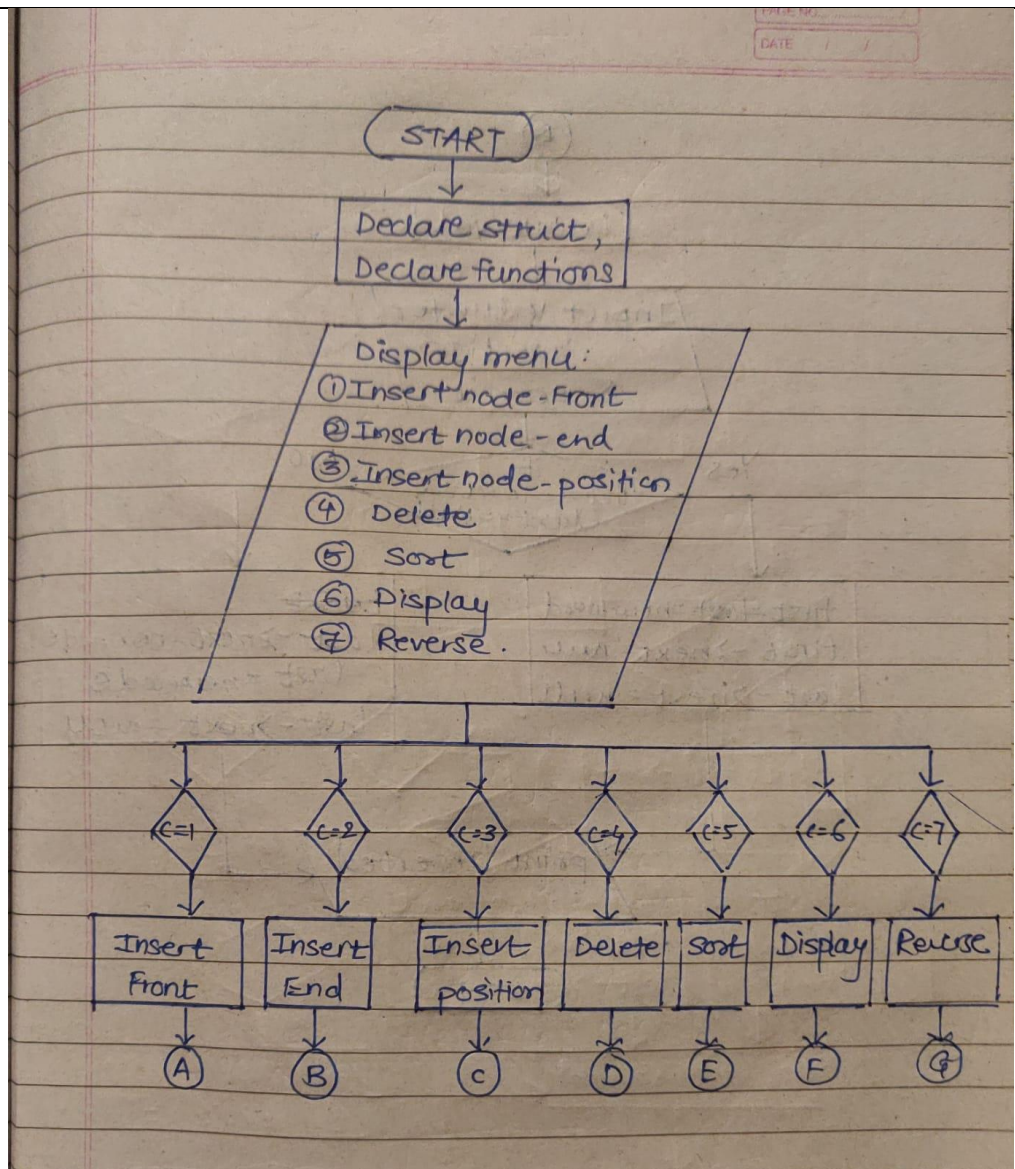 PAGE NO.
DATE / /
START
Declare struct,
Declare functions
Display menu:
① Insert node-Front
② Insert node-end
③ Insert node-position
④ Delete
⑤ Sort
⑥ Display
⑦ Reverse.
c=1 c=2 c=3 c=4 c=5 c=6 c=7
Insert Insert Insert Delete Sort Display Reverse
Front End position
A B C D E F G